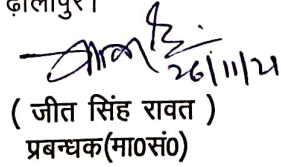 ढालीपुर।
26/11/21
( जीत सिंह रावत )
प्रबन्धक(मा0सं0)